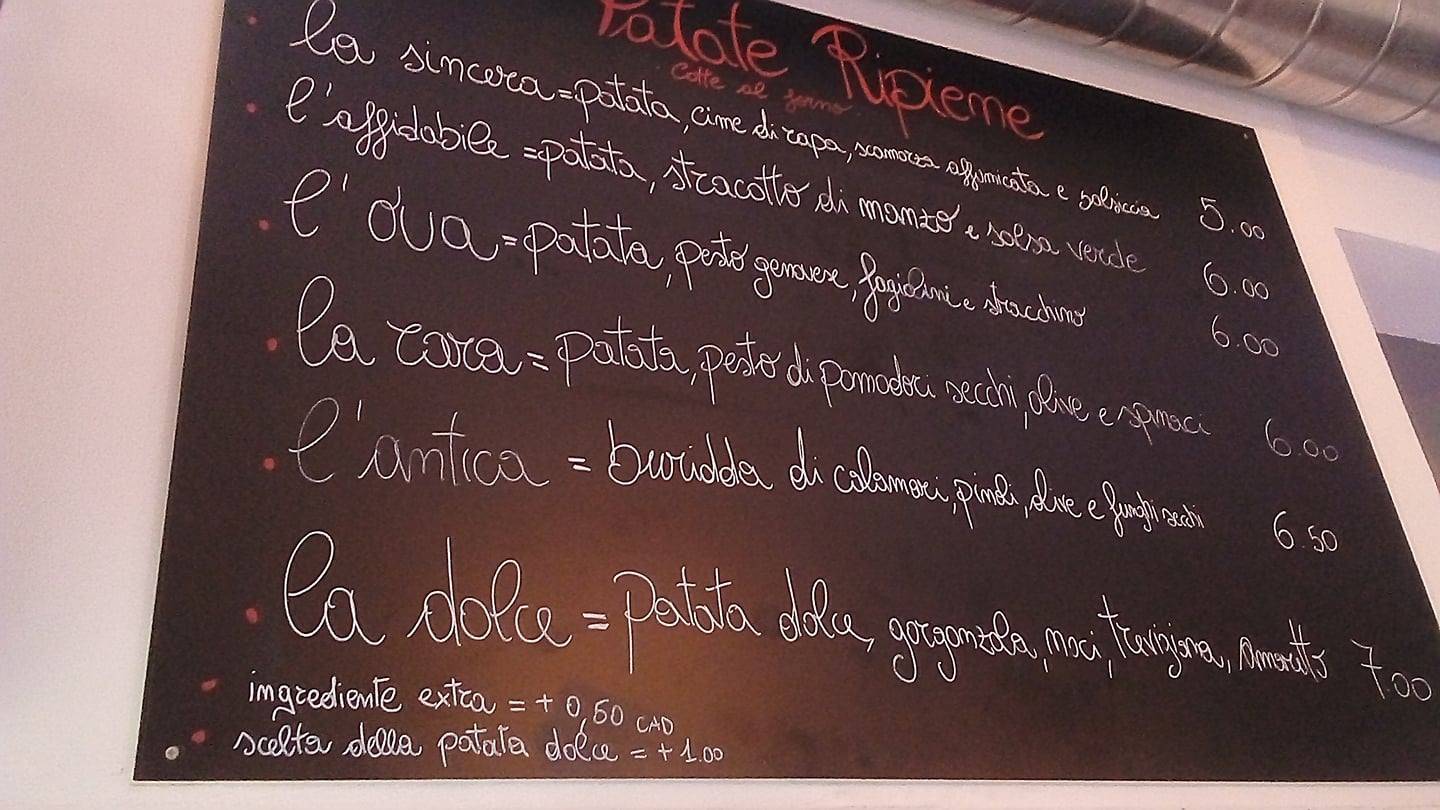 Patate Ripiene
Cotte al forno
la sincera = patata, cime di rapa, scamorza affumicata e salsiccia 5.00
l'affidabile = patata, stracotto di manzo e salsa verde 6.00
l'ova = patata, pesto genovese, fagiolini e stracchino 6.00
la rara = patata, pesto di pomodori secchi, olive e spinaci 6.00
l'antica = buridda di calamari, pinoli, olive e funghi secchi 6.50
la dolce = patata dolce, gorgonzola, noci, trevigiana, amaretto 7.00
ingrediente extra = + 0,50 CAD
scelta della patata dolce = + 1.00